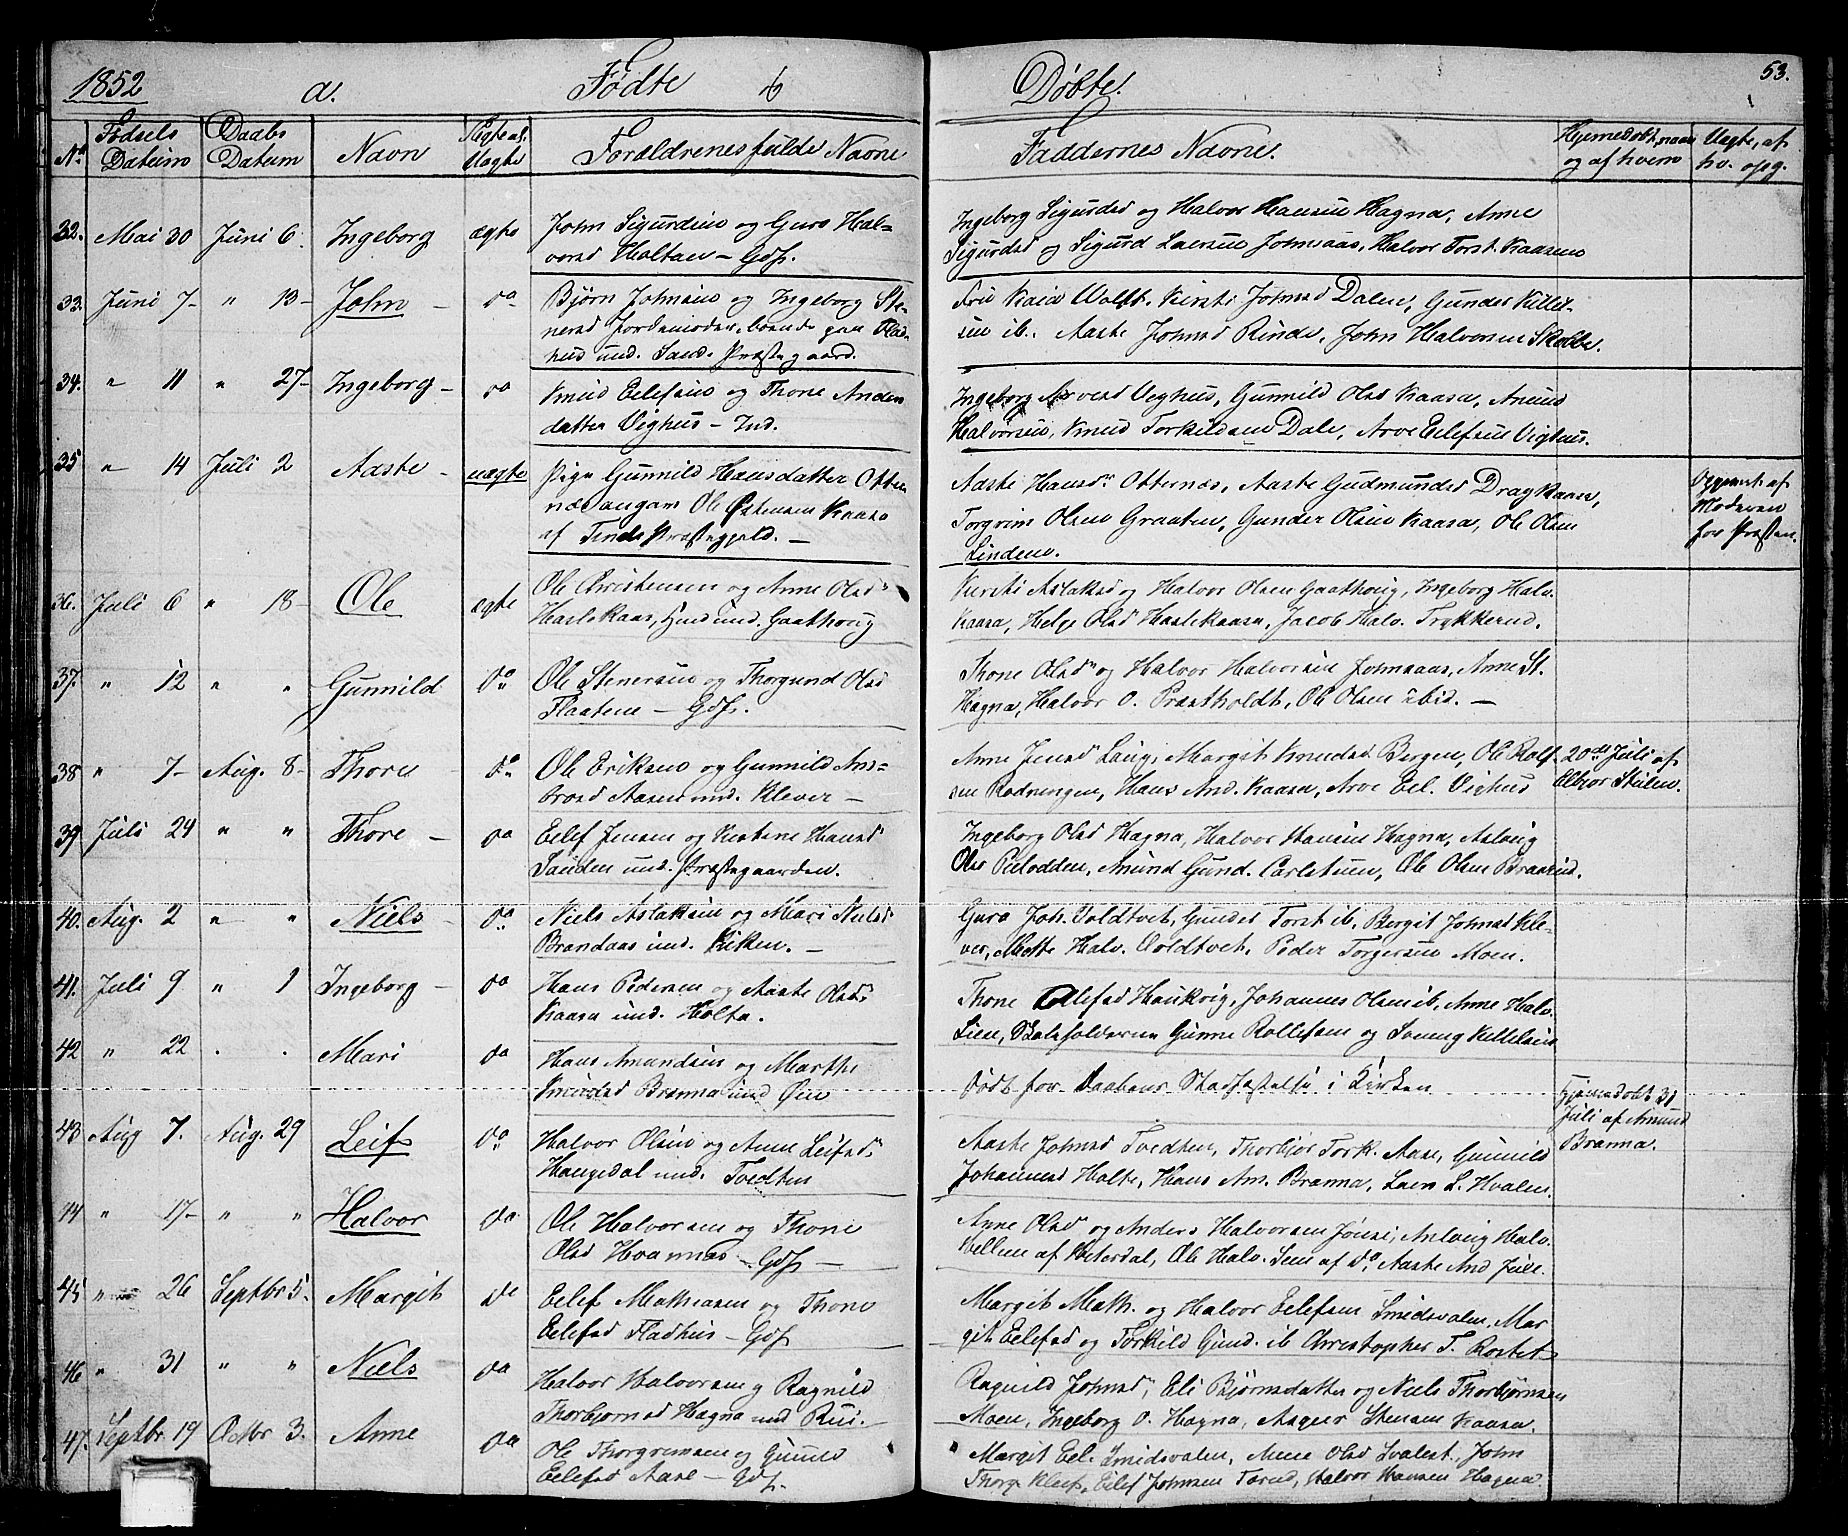 1852 a. Fødte & Døbte. 53.
No Fødsels Datum Daabs Datum Navn Ægte el. Uægte Forældrenes fulde Navne Faddernes Navne. Hjemmedøbt, naar og af hvem Uægte, af hv. opg.
32. Mai 30 Juni 6. Ingeborg ægte John Sigurdsen og Guro Hal-
vorsd Holtan - Gdf.
Ingeborg Sigurdsd og Halvor Hansen Hagna, Anne
Sigurdsd og Sigurd Larsen Johnsaas, Halvor Torst. Kaasene
33. Juni 7- " 13- John - do Bjørn Johnsen og Ingeborg Ste-
nersd Jordemoder, boende paa Flad-
hus und. Sand. Præstegaard.
Fru Kaia Wolft. Kirsti Johnsd Dalen, Gunder Kittil-
sen ib. Aaste Johnsd Rinde, John Halvorsen Skolbe.
34. " 11 " 27- Ingeborg - do Knud Eilefsen og Thone Anden
datter Vighus - Ind.
Ingeborg Arvesd Veghus, Gunnild Olsd Kaasa, Anund
Halvorsen, Knud Torkildsen Dale, Arve Eilefsen Vighus.
35 " 14 Juli 2 Aaste - uægte Pige Gunnild Hansdatter Otter
næs angav Ole Østensen Kaasa
af Tinds Præstegjeld. -
Aaste Hansdr Otternæs, Aaste Gudmundsd Dragkaasa,
Torgrim Olsen Graaten, Gunder Olsen Kaasa, Ole Olsen
Lindem.
Opgivet af
Moderen
for Præsten.
36. Juli 6 " 18- Ole ægte Ole Christensen og Anne Olsdr
Haslekaas, Husm und. Gaathoug
Kirsti Aslaksd og Halvor Olsen Gaathoug, Ingeborg Halv.
Kaasa, Helge Olsdr Haslekaasa, Jacob Halv. Trykkerud.
37. " 12 " " Gunnild do Ole Stenersen og Thorgund Olsd
Flaatene - Gdf.
Thone Olsdr og Halvor Halvorsen Johnsaas, Anne St.
Hagna, Halvor O. Præstholdt, Ole Olsen ibid. -
38 " 7- Aug. 8- Thore - do Ole Eriksen og Gunnild Am-
brosd Aasen und. Klever -
Anne Jensd Laug, Margit Knudsd Bergen, Ole Rolf-
sen Rodningen, Hans And. Kaasa, Arve Eel. Vighus
20de Juli af
Elbior Stulen.
39. Juli 24 " " Thore - do Eilef Jensen og Kirstene Hansd
Sanden und. Præstegaarden.
Ingeborg Olsd Hagna, Halvor Hansen Hagna, Aslaug
Ols Pelodden, Anund Gund. Carlstuen, Ole Olsen Braarud.
40. Aug. 2 " " Niels - do Niels Aslaksen og Mari Nielsd
Brandaas und. Kirken. -
Guro Joh. Voldtvet, Gunder Torst ib. Bergit Johnsd Kle-
ver, Mette Halv. Voldtvet, Peder Torgersen Moen.
41. Juli 9 " 1 Ingeborg - do Hans Pedersen og Aaste Olsdr
Kaasa und. Holta.
Thone Olefsd Haukvig, Johannes Olsen ib. Anne Halv.
Lien, Gunne Rollefsen og Svenug Kittelsen
42 " 22 . . Mari do Hans Amundsen og Marthe
Knudsd Brænna und Øen
Født for Daabens Stadfæstelse i Kirken
Hjemmedøbt 31
Juli af Amund
Brænna.
43 Aug 7. Aug. 29 Leif do Halvor Olsen og Anne Leifsdr
Haugedal und. Tvedten
Aaste Johnsd Tvedten, Thorbjør Tork. Aase, Gunnild
Johannesd Holte, Hans Am. Brænna, Lars L. Hvalen.
44 " 17- " " Halvor do Ole Halvorsen og Thone
Olsd Hvamnæs - Gdf -
Anne Olsd og Anders Halvorsen Jønsi, Aslaug Halv.
Vellem af Hiterdal, Ole Halv. Sem af do Aaste And Jule.
45 " 26 Septbr 5. Margit do Eilef Mathiasen og Thone
Eilefsd Fladhus - Gdf
Margit Math. og Halvor Eilefsen Smidsvalen, Mar
git Eilefsd og Torkild Gund. ib Christopher T. Rostet
46 " 31 " " Niels do Halvor Halvorsen og Ragnild
Thorbjørnsd Hagna und Rui.
Ragnild Johnsd, Eli Bjørnsdatter og Niels Thorbjørnsen
Moen, Ingeborg O. Hagna, Asgier Stensen Kaasa.
47. Septbr 19 Octbr 3. Anne do Ole Thorgrimsen og Gunne
Eilefsd Aase - Gdf.
" Margit Eel. Smidsvalen, Anne Olsd Svalest. John
Thorg Kleif, Eilef Johnsen Torud, Halvor Hansen Hagna.